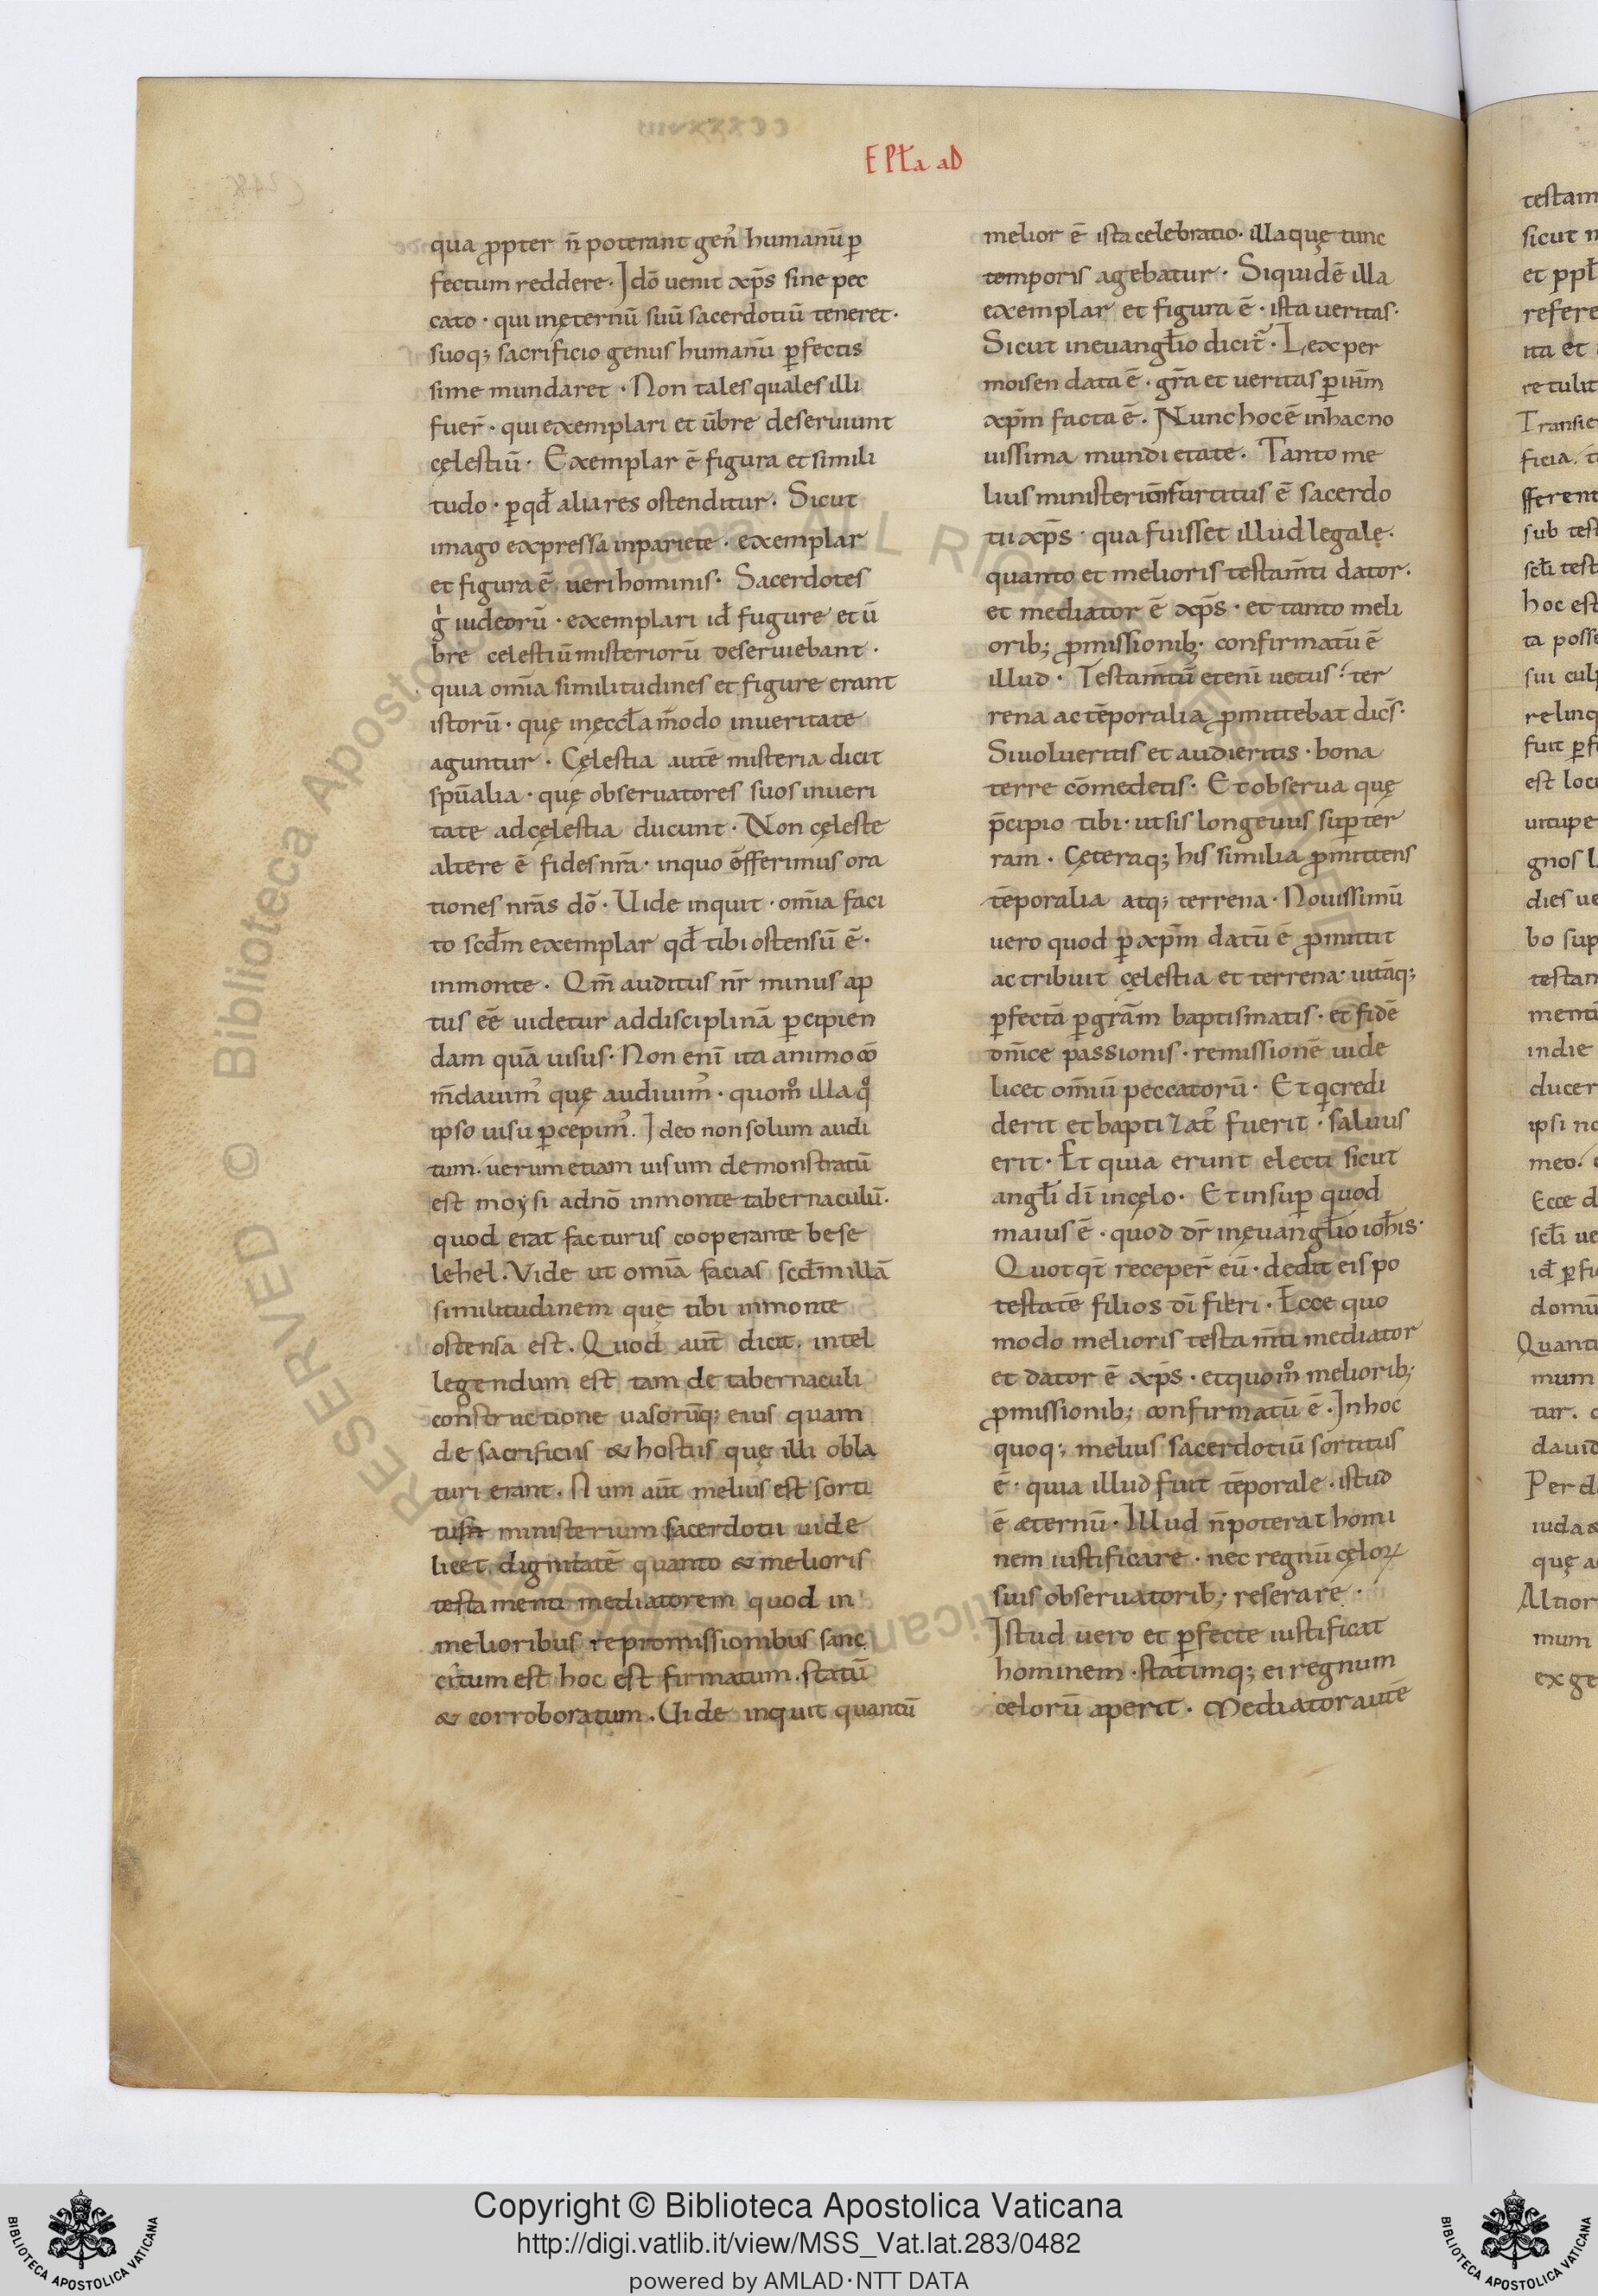 EPl̄a aD
qua ꝓpter n̄ poterant gen᾽ humanū ꝑ
fectum reddere· Idō uenit xp̄s sine pec
cato· qui inęternū suū sacerdotiū teneret·
suoq; sacrificio genus humanū ꝑfectis
sime mundaret· Non tales quales illi
fuer̄· qui exemplari et ūbre deseruiunt
cęlestiū· Exemplar ē figura et simili
tudo· ꝑ qđ alia res ostenditur· Sicut
imago expressa inpariete· exemplar
et figura ē ueri hominis· Sacerdotes
g̍ iudeorū· exemplari iđ fugure et ū
bre celestiū misteriorū deseruiebant·
quia om̄ia similitudines et figure erant
istorū· quę inęccl̄a m̄odo inueritate
aguntur· Cęlestia autē misteria dicit
spūalia· quę obseruatores suos inueri
tate adcęlestia ducunt· Non cęleste
altere ē fides nr̄a· inquo ōfferimus ora
tiones nr̄as dō· Uide inquit· om̄ia faci
to scđm exemplar qđ tibi ostensū ē·
inmonte· Qm̄ auditus nr̄ minus ap
tus eē uidetur addisciplinā ꝑcipien
dam quā uisus· Non enī ita animo cō
m̄dauim᾽ quę audiuim᾽· quom̊ illa q̊
ipso uisu ꝑcepim᾽. Ideo non solum audi
tum· uerum etiam uisum demonstratū
est moysi adnō inmonte tabernaculū·
quod erat facturus cooperante bese
lehel. Vide ut omīa facias scđm illā
similitudinem quę tibi inmonte
ostensa est. Quod aut̄ dicit. intel
legendum est tam de tabernaculi
constructione uasorūq; eius quam
de sacrificiis & hostiis quę illi obla
turi erant. Num aūt melius est sorti
tus ministerium sacerdotii uide
licet dignitatē quanto & melioris
testamenti mediatorem quod in
melioribus repromissionibus sanc
citum est hoc est firmatum. statū
& corroboratum. Uide inquit quantū
melior ē ista celebratio· illa quę tunc
temporis agebatur· Siquidē illa
exemplar et figura ē· ista ueritas·
Sicut ineuangl̄io dicit᾽· Lex per
moisen data ē· gr̄a et ueritas ꝑ ihm̄
xp̄m facta ē. Nunc hoc ē inhac no
uissima mundi etate. Tanto me
lius ministeriū sortitus ē sacerdo
tii xp̄s· qua fuisset illud legale·
quanto et melioris testam̄ti dator.
et mediator ē xp̄s· et tanto meli
orib; ꝓmissionib; confirmatū ē
illud· Testam̄tū etenī uetus· ter
rena ac tēporalia ꝓmittebat dic̄s·
Siuolueritis et audieritis· bona
terre cōmedetis· Et obserua quę
p̄cipio tibi· ut sis longeuus suꝑ ter
ram· Cęteraq; his similia ꝓmittens
tēporalia atq; terrena· Nouissimū
uero quod ꝑ xp̄m datū ē ꝓmittit
ac tribuit cęlestia et terrena· uitāq;
ꝑfectā ꝑ grām baptismatis· et fidē
dn̄ice passionis· remissionē uide
licet om̄iū peccatorū· Et qͥ credi
derit et baptizat᾽ fuerit· saluus
erit· Et quia erunt electi sicut
angl̄i dī incęlo· Et insuꝑ quod
maius ē· quod dr̄ inęuangl̄io ioh̄is·
Quotqt̄ receper̄ eū· dedit eis po
testatē filios dī fieri· Ecce quo
modo melioris testam̄ti mediator
et dator ē xp̄s· et quom̊ meliorib;
ꝓmissionib; confirmatū ē. In hoc
quoq; melius sacerdotiū sortitus
ē· quia illud fuit tēporale· istud
ē æternū· Illud n̄ poterat homi
nem iustificare· nec regnū cęloꝝ
suis obseruatorib; reserare·
Istud uero et ꝑfecte iustificat
hominem· statimq; ei regnum
celorū aperit· Mediator autē
testam
sicut
et ppl̄
refere
ita et
retulit
Transie
ficia.
fferent
sub test
scl̄i test
hoc est
ta posse
sui culp
relinq
fuit ꝑf
est locu
uitupe
gnos
dies ue
bo sup
testan
menti
indie
ducer
ipsi no
meo.
Ecce d
scl̄i ue
iđ ꝑfi
domū
Quanti
mum
tur.
dauid
Per d
iuda&
quę a
Altior
mum
ex ge
Copyright © Biblioteca Apostolica Vaticana
http://digi.vatlib.it/view/MSS_Vat.lat.283/0482
powered by AMLAD·NTT DATA
BIBLIOTECA APOSTOLICA VATICANA
BIBLIOTECA APOSTOLICA VATICANA